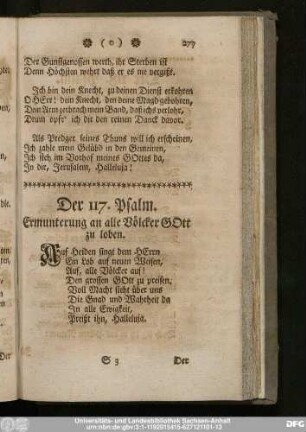 ( o ) 277
Der Gunstgenossen werth, ihr Sterben ist
Dem Höchsten wehrt daß er es nie vergißt.
Ich bin dein Knecht, zu deinen Dienst erkohren
O HErr! dein Knecht, den deine Magd gebohren,
Dein Arm zerbrach mein Band, daß ichs verlohr,
Drum opfr' ich dir den reinen Danck davor.
Als Prediger seines Thuns will ich erscheinen,
Ich zahle mein Gelübd in den Gemeinen,
Ich steh im Vorhof meines GOttes da,
In dir, Jerusalem, Halleluja!
Der 117. Psalm.
Ermunterung an alle Völcker GOtt
zu loben.
Auf Heiden singt dem HErrn
Ein Lob auf neuen Weisen,
Auf, alle Völcker auf!
Den grossen GOtt zu preisen,
Voll Macht steht über uns
Die Gnad und Wahrheit da
In alle Ewigkeit,
Preißt ihn, Halleluja.
S 3 Der
Universitäts- und Landesbibliothek Sachsen-Anhalt
urn:nbn:de:gbv:3:1-1192015415-627121101-13
DFG